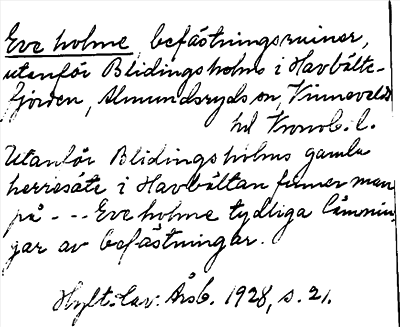 Eve holme, befästningsruiner,
utanför Blidingsholms i Havbälte-
fjorden, Almundsryds sn, Vinnevalds
hd Kronob. l.
Utanför Blidingsholms gamla
herresäte i Havbältan finner man
på --- Eve holme tydliga lämnin-
gar av befästningar.
Hylt. Cav. Årsb. 1928, s. 21.